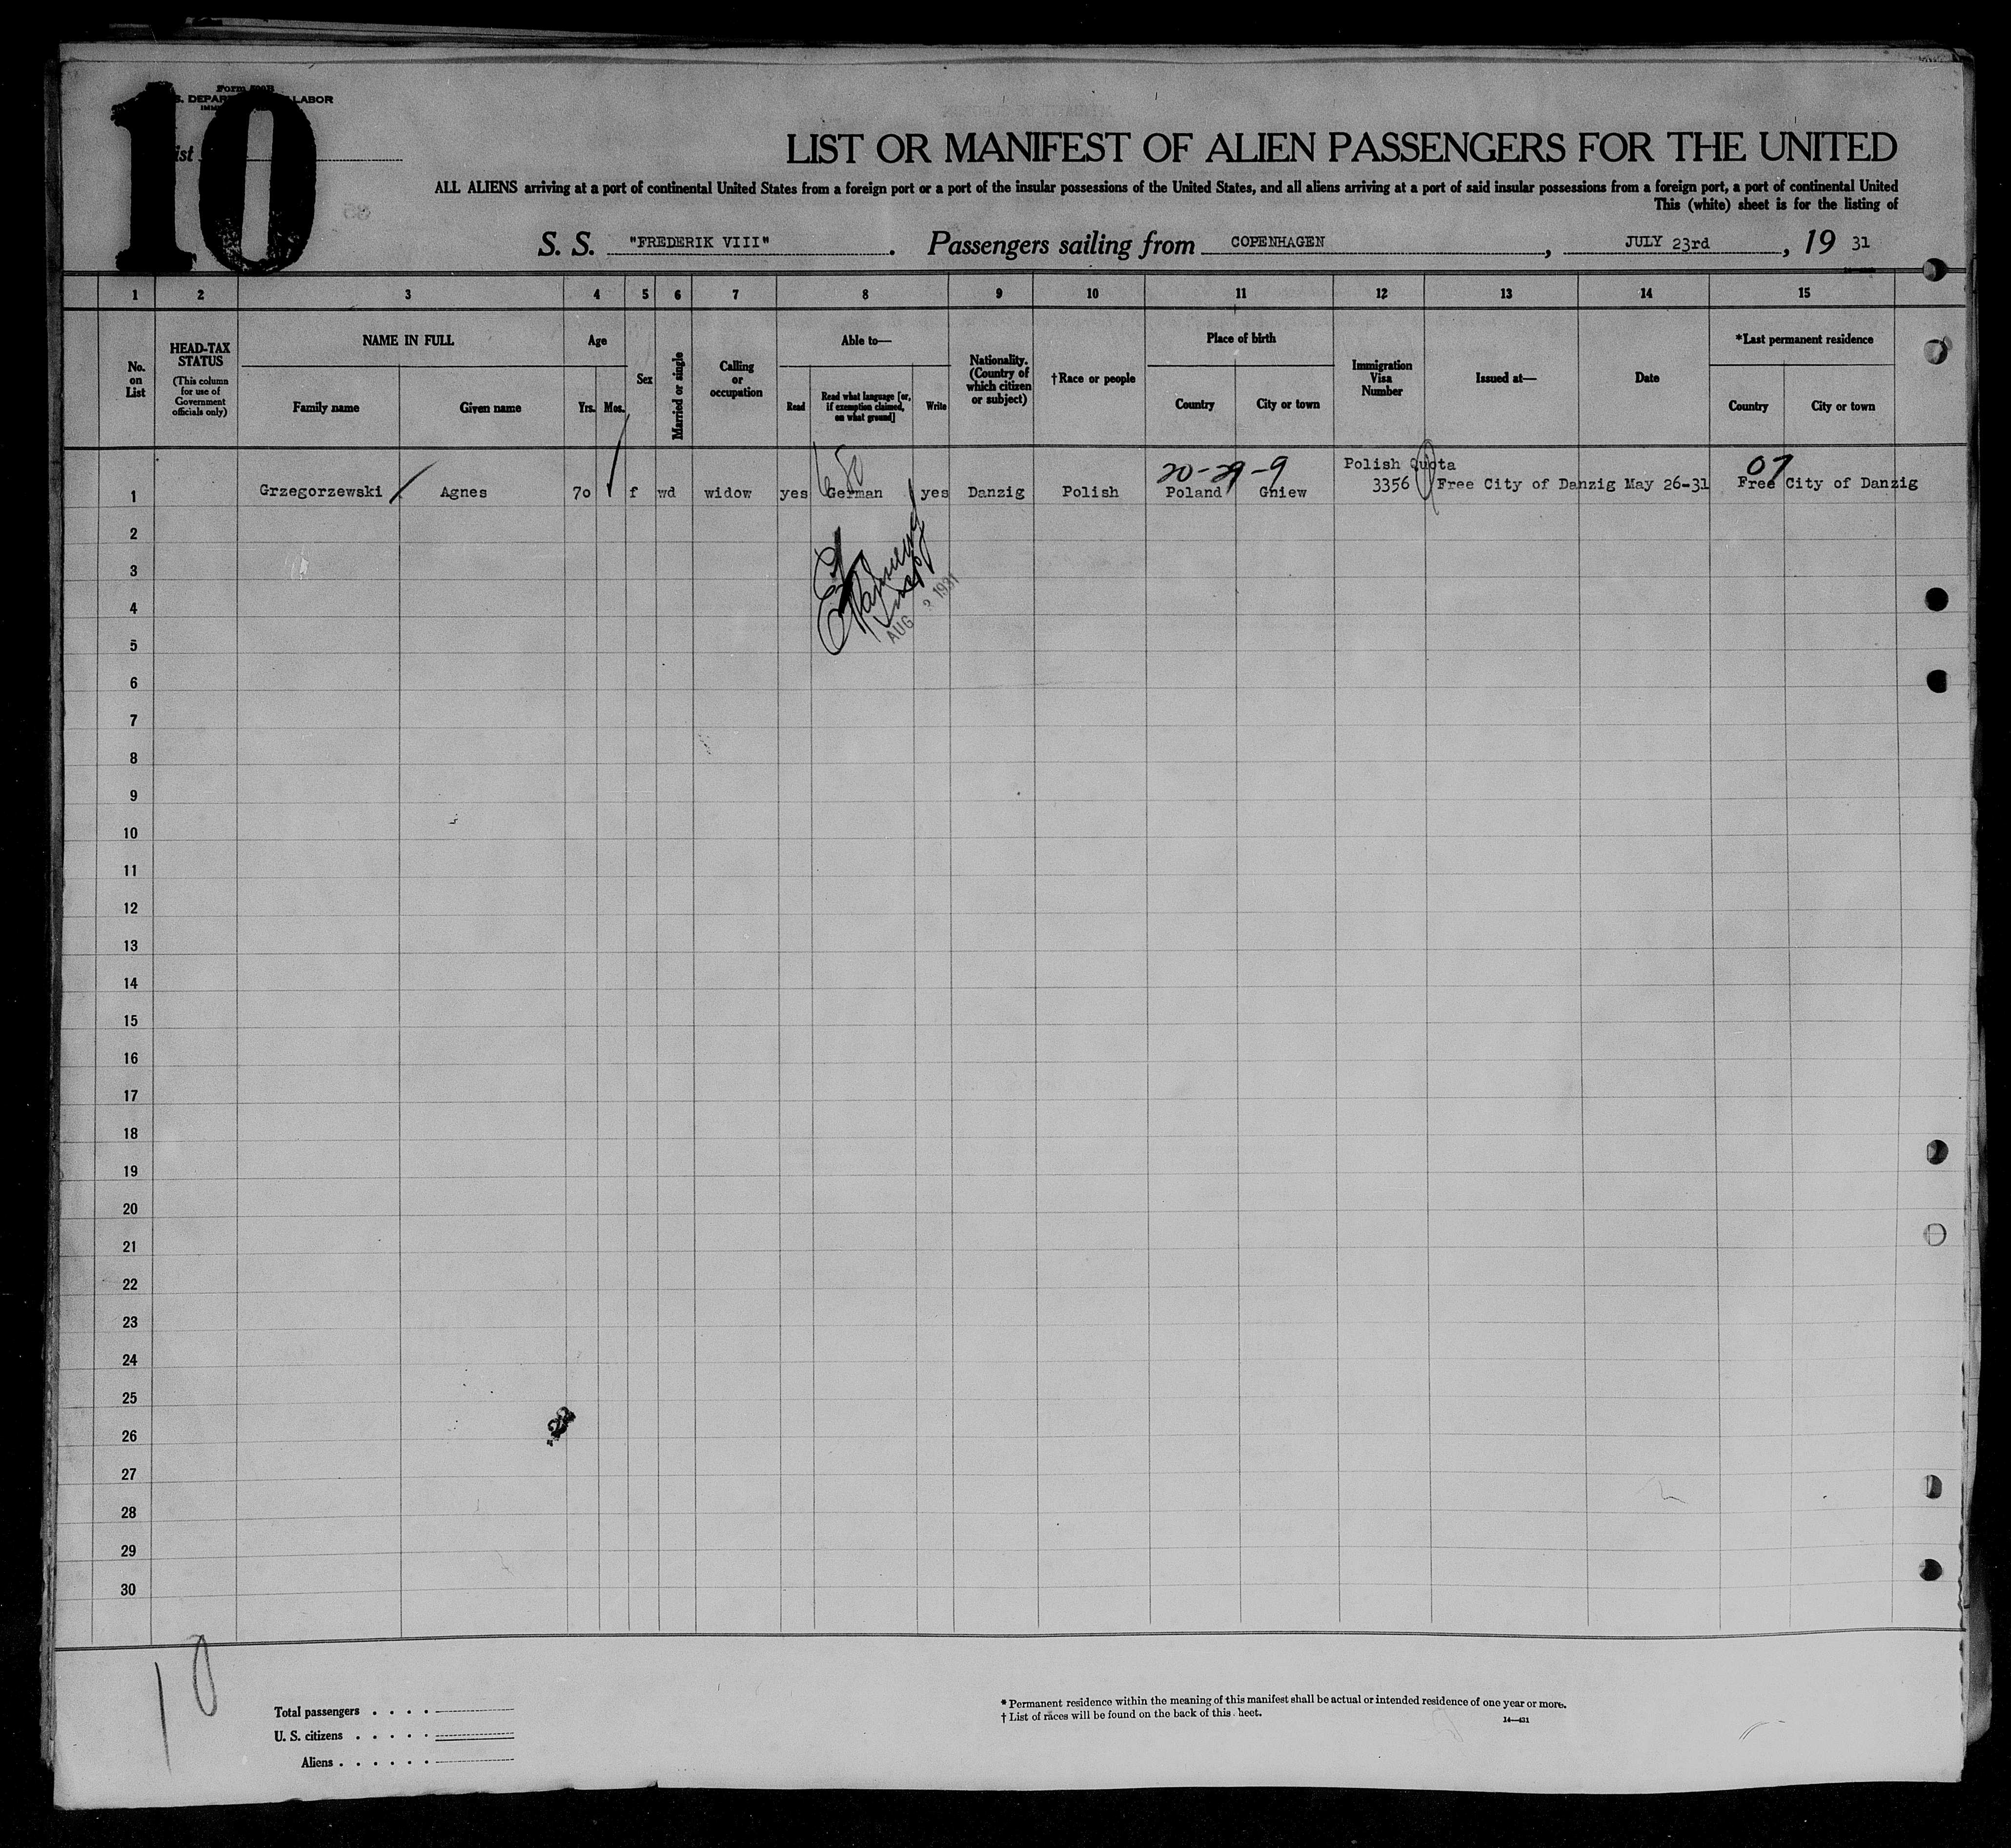 Form 500B
LABOR
10
LIST OR MANIFEST OF ALIEN PASSENGERS FOR THE UNITED
ALL ALIENS arriving at a port of continental United States from a foreign port or a port of the insular possessions of the United States, and all aliens arriving at a port of said insular possessions from a foreign port, a port of continental United
This (white) sheet is for the listing of
S. S. "FREDERIK VIII". Passengers sailing from COPENHAGEN, JULY 23rd, 19 31
1 2 3 4 5 6 7 8 9 10 11 12 13 14 15
No. on List
HEAD-TAX STATUS
(This column for use of Government officials only)
NAME IN FULL
Family name Given name
Age
Yrs. Mos.
Sex
Married or single
Calling or occupation
Able to—
Read
Read what language [or, if exemption claimed, on what ground]
Write
Nationality. (Country of which citizen or subject)
†Race or people
Place of birth
Country City or town
Immigration Visa Number
Issued at—
Date
*Last permanent residence
Country City or town
20-29-9 Polish Quota 07
1 Grzegorzewski Agnes 7o f wd widow yes German yes Danzig Polish Poland Gniew 3356 Free City of Danzig May 26-31 Free City of Danzig
2
3
AUG 1931
4
5
6
7
8
9
10
11
12
13
14
15
16
17
18
19
20
21
22
23
24
25
26
27
28
29
30
10
Total passengers . . . .
U. S. citizens . . . . .
Aliens . . . . . .
* Permanent residence within the meaning of this manifest shall be actual or intended residence of one year or more.
† List of races will be found on the back of this heet.
14—421